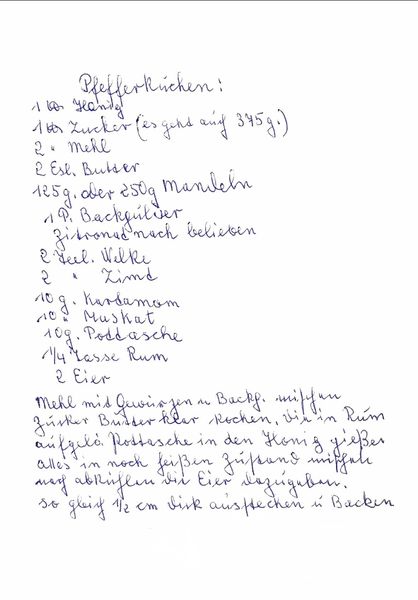 Pfefferkuchen:
1 tb Honig
1 tb Zucker (es geht auch 375g.)
2 " Mehl
2 Esl. Butter
125g. oder 250g Mandeln
1 P. Backpulver
Zitronat nach belieben
2 Teel. Nelke
2 " Zimd
10 g. Kardamom
10 " Muskat
10g. Poddasche
1/4 Tasse Rum
2 Eier
Mehl mit Gewürzen u Backp. mischen
Zucker Butter klar kochen, die in Rum
aufgelö. Pottasche in den Honig gießen
alles in noch heißen Zustand mischen
nach abkühlen die Eier dazugeben.
so gleich 1/2 cm dick ausstechen u Backen